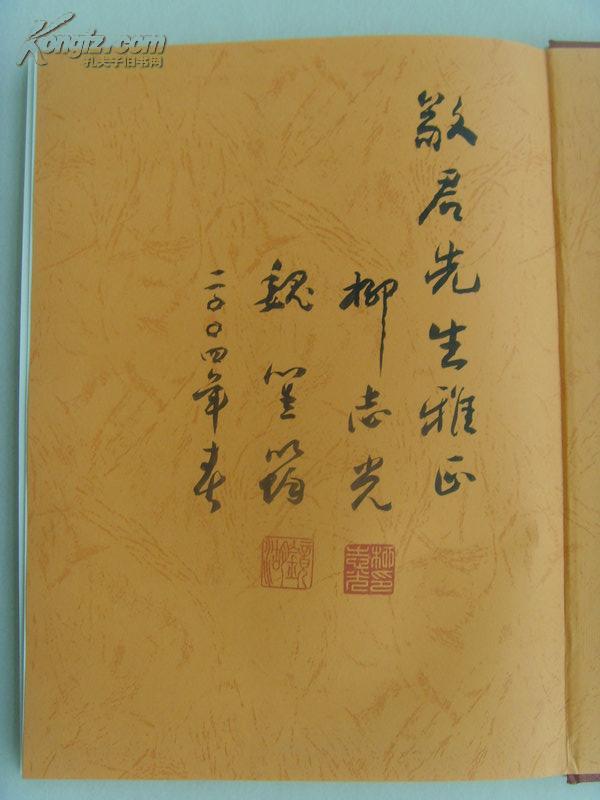 Kongfz.com
孔夫子旧书网
敬君先生雅正
柳志光
魏笠筠
二〇〇四年春
柳志光印